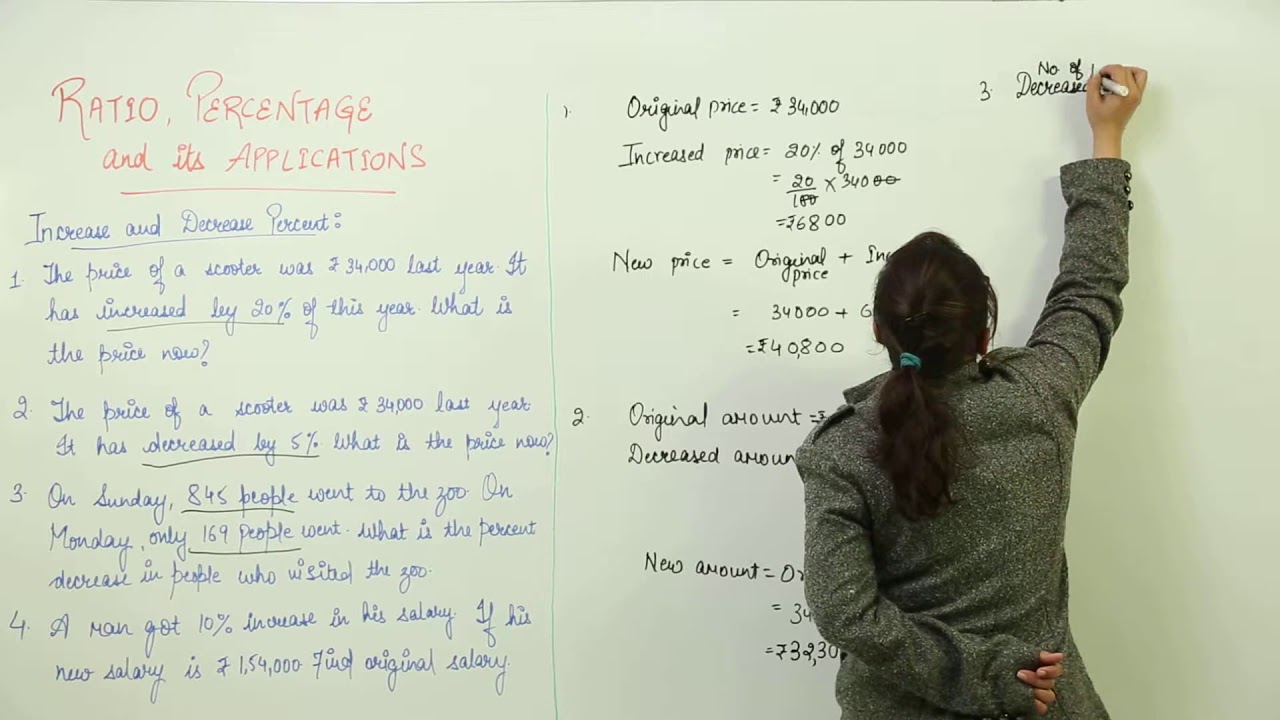 RATIO, PERCENTAGE
and its APPLICATIONS
Increase and Decrease Percent:
1. The price of a scooter was ₹ 34,000 last year. It
has increased by 20% of this year. What is
the price now?
2. The price of a scooter was ₹ 34,000 last year
It has decreased by 5%. What is the price now?
3. On Sunday, 845 people went to the zoo. On
Monday, only 169 people went. What is the percent
decrease in people who visited the zoo.
4. A man got 10% increase in his salary. If his
new salary is ₹ 1,54,000 Find original salary.
1. Original price = ₹ 34,000
Increased price = 20% of 34000
= 20/100 × 34000
= ₹6800
New price = Original price +
= 34000 +
= ₹40,800
2. Original amount = ₹
Decreased amoun
New amount =
=
= ₹32,30
3. No. of
Decreased